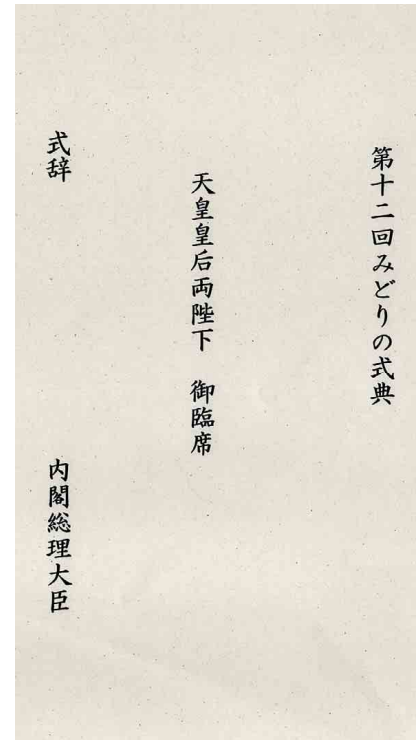 第十二回みどりの式典
天皇皇后両陛下　御臨席
式辞　内閣総理大臣